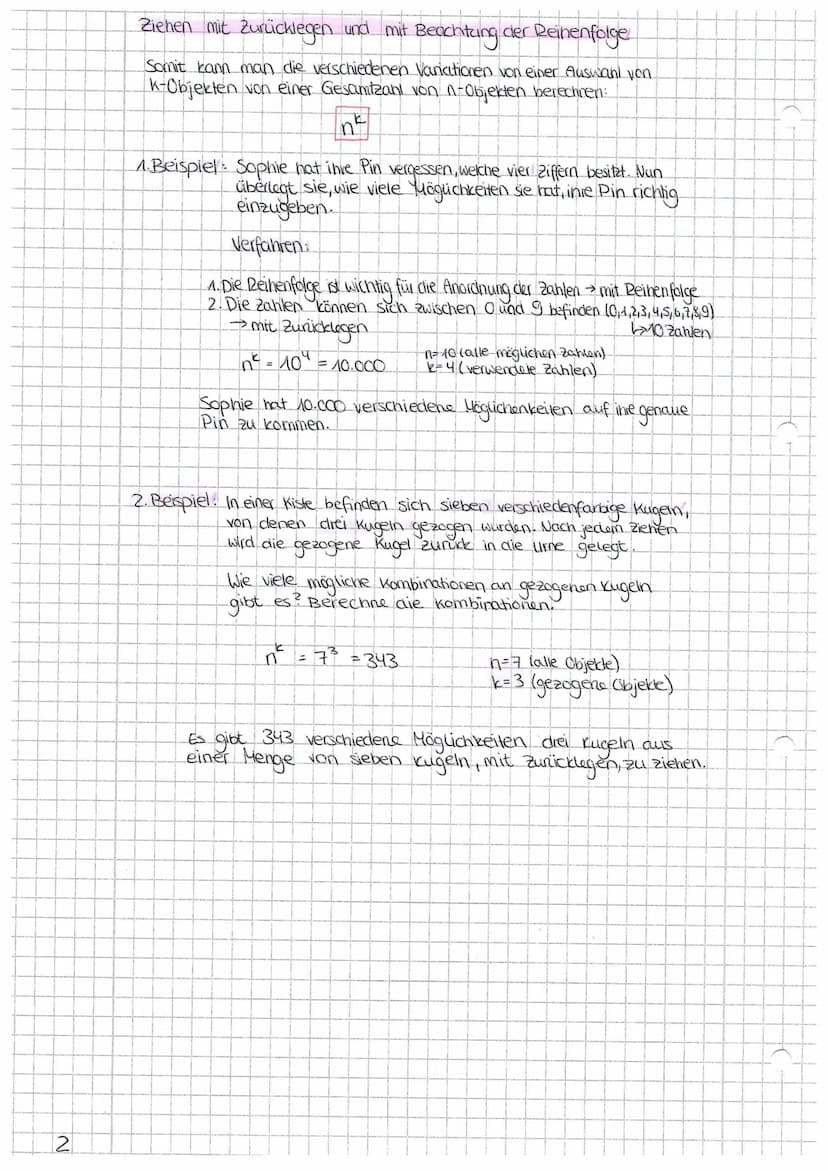 Ziehen mit Zurücklegen und mit Beachtung der Reihenfolge
Somit kann man die verschiedenen Variationen von einer Auswahl von
k-Objekten von einer Gesamtzahl von n-Objekten berechnen:
n^k
1. Beispiel: Sophie hat ihre Pin vergessen, welche vier Ziffern besitzt. Nun
überlegt sie, wie viele Möglichkeiten sie hat, ihre Pin richtig
einzugeben.
Verfahren:
1. Die Reihenfolge ist wichtig für die Anordnung der Zahlen → mit Reihenfolge
2. Die Zahlen können sich zwischen 0 und 9 befinden (0,1,2,3,4,5,6,7,8,9)
→ mit Zurücklegen ↳ 10 Zahlen
n^k = 10^4 = 10.000 n=10 (alle möglichen Zahlen)
k=4 (verwendete Zahlen)
Sophie hat 10.000 verschiedene Möglichenkeiten auf ihre genaue
Pin zu kommen.
2. Beispiel: In einer Kiste befinden sich sieben verschiedenfarbige Kugeln,
von denen drei Kugeln gezogen wurden. Nach jedem Ziehen
wird die gezogene Kugel zurück in die Urne gelegt.
Wie viele mögliche Kombinationen an gezogenen Kugeln
gibt es? Berechne die Kombinationen.
n^k = 7^3 = 343 n=7 (alle Objekte)
k=3 (gezogene Objekte)
Es gibt 343 verschiedene Möglichkeiten drei Kugeln aus
einer Menge von sieben Kugeln, mit zurücklegen, zu ziehen.
2